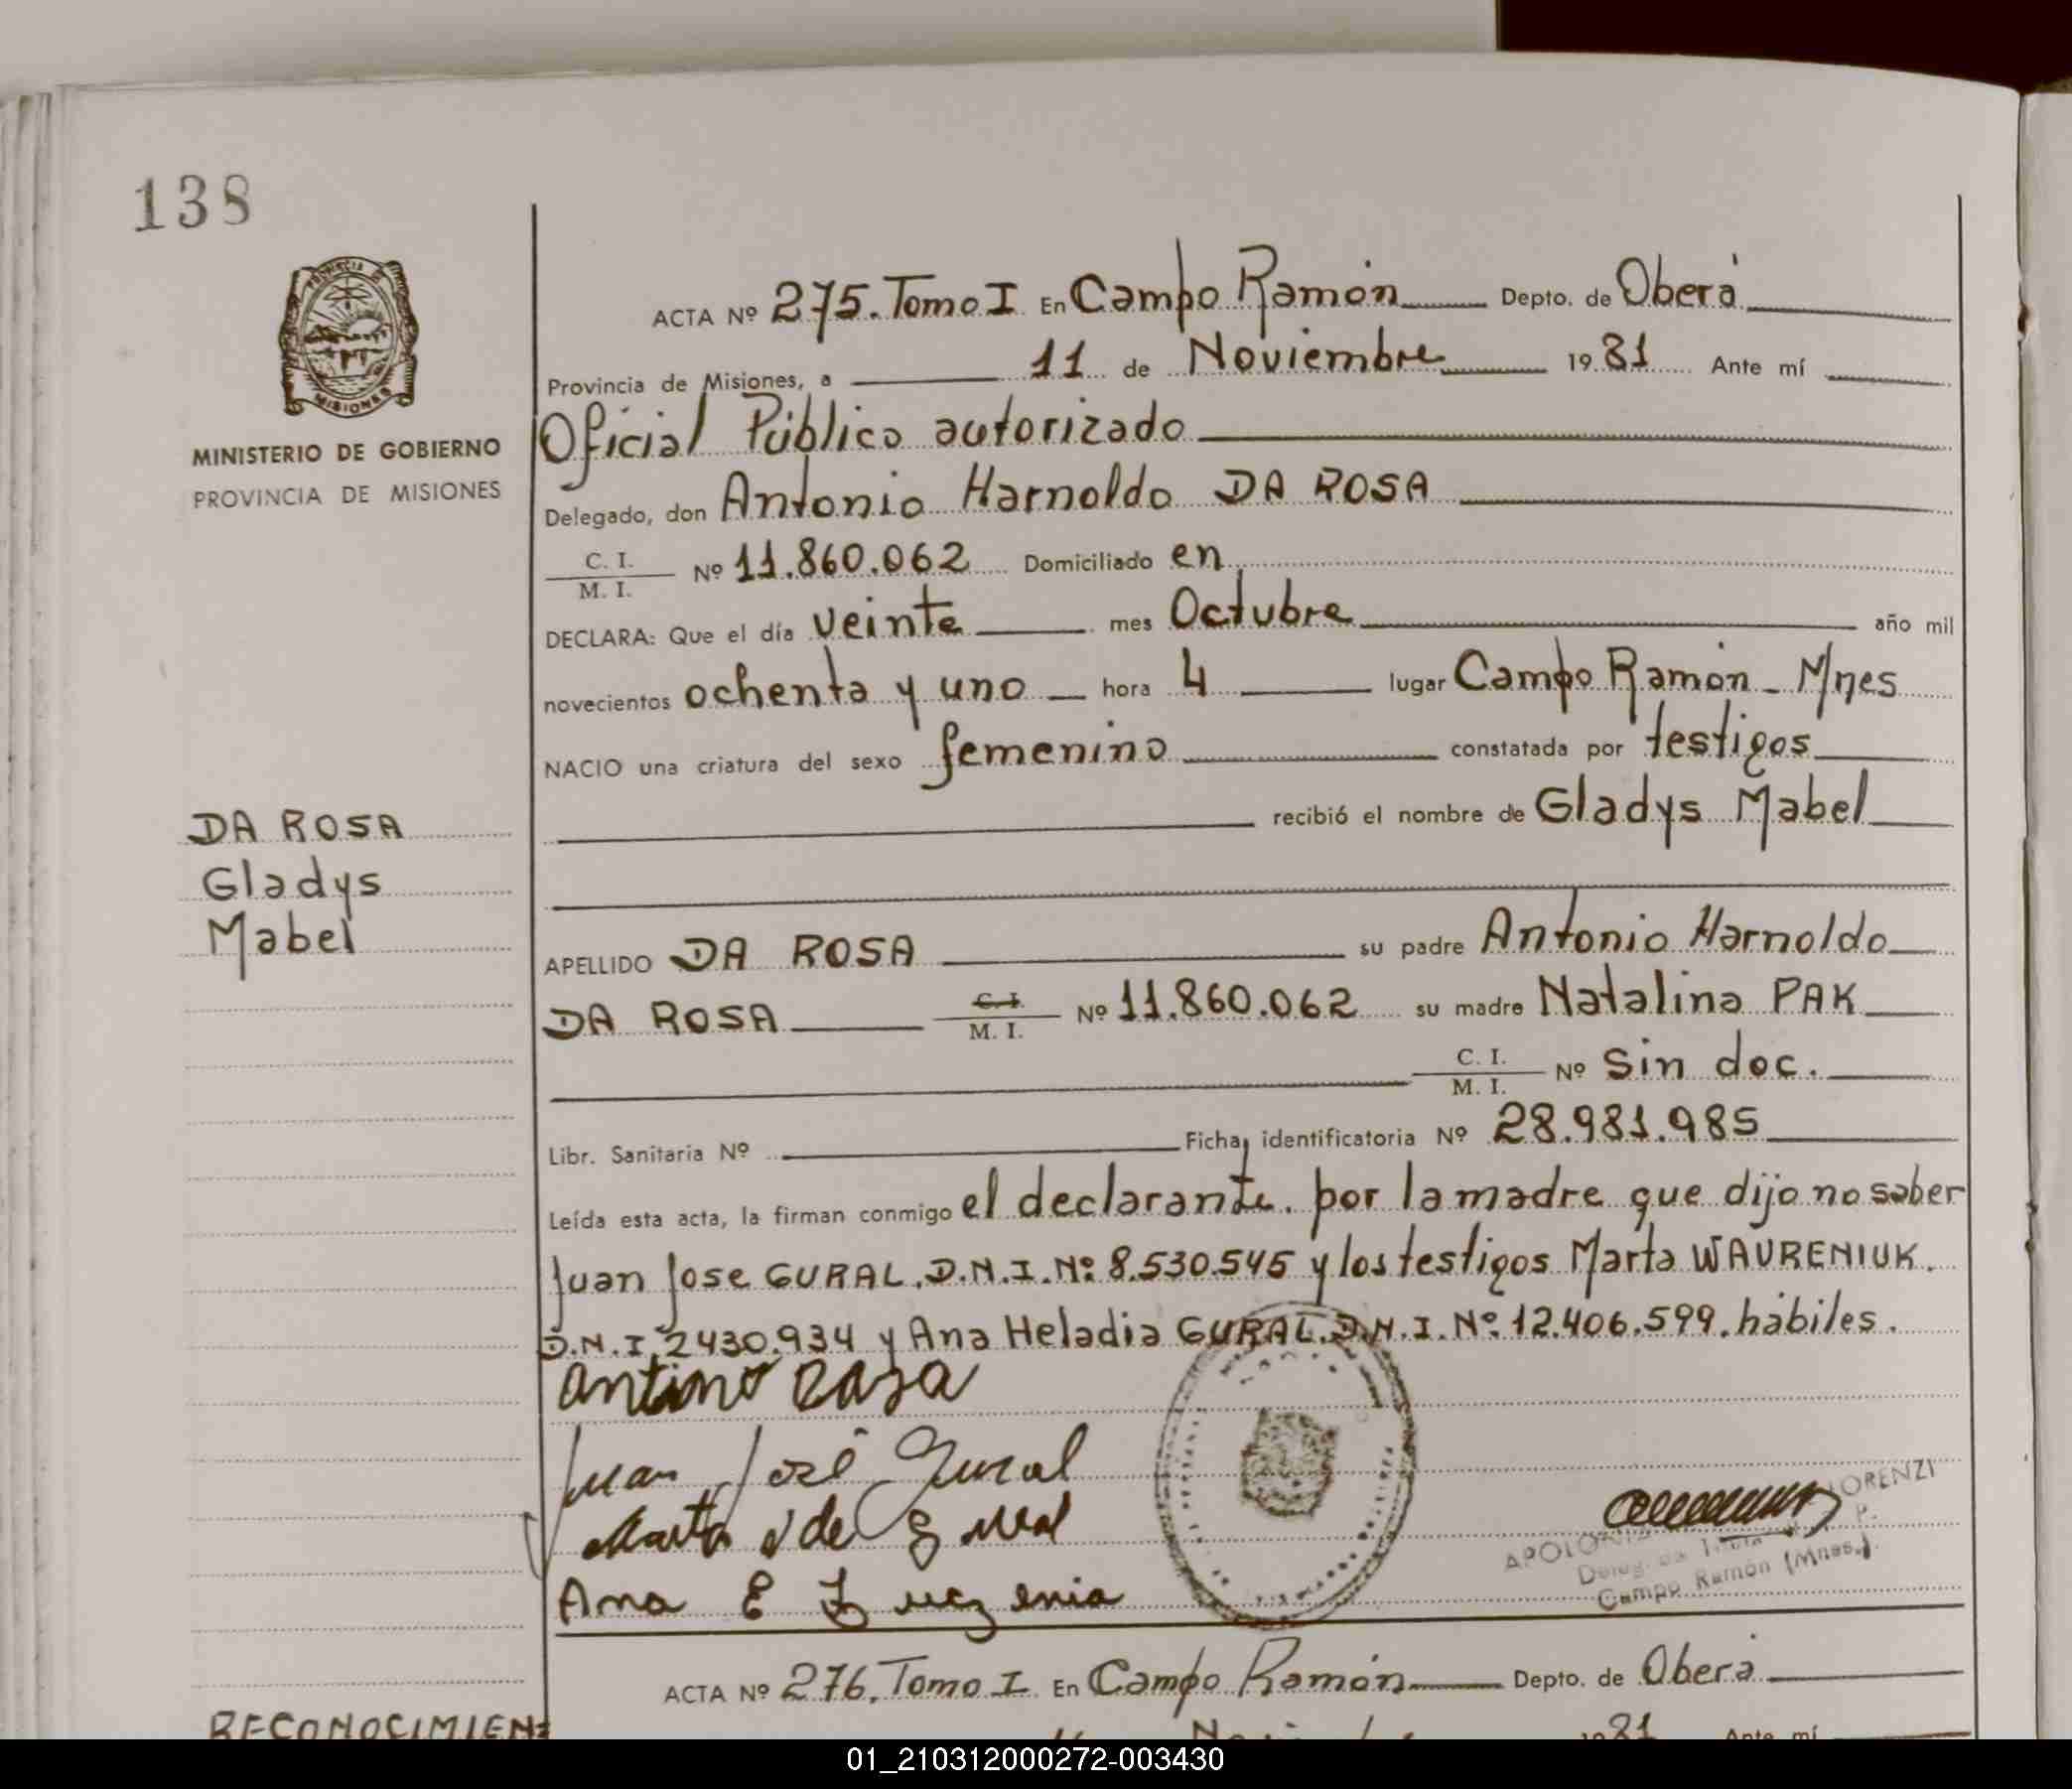 138
PROVINCIA DE
MISIONES
MINISTERIO DE GOBIERNO
PROVINCIA DE MISIONES
DA ROSA
Gladys
Mabel
ACTA Nº 275. Tomo I En Campo Ramón Depto. de Oberá
Provincia de Misiones, a 11 de Noviembre 19 81 Ante mí
Oficial Público autorizado
Delegado, don Antonio Harnoldo DA ROSA
C. I. / M. I. Nº 11.860.062 Domiciliado en
DECLARA: Que el día veinte mes Octubre año mil
novecientos ochenta y uno hora 4 lugar Campo Ramón - Mnes
NACIO una criatura del sexo femenino constatada por testigos
recibió el nombre de Gladys Mabel
APELLIDO DA ROSA su padre Antonio Harnoldo
DA ROSA C. I. / M. I. Nº 11.860.062 su madre Natalina PAK
C. I. / M. I. Nº Sin doc.
Libr. Sanitaria Nº Ficha identificatoria Nº 28.981.985
Leída esta acta, la firman conmigo el declarante. por la madre que dijo no saber
Juan Jose GURAL. D.N.I. Nº 8.530.545 y los testigos Marta WAURENIUK.
D.N.I. 2430.934 y Ana Heladia GURAL. D.N.I. Nº 12.406.599. hábiles.
Juan José Gural
Marta de Gural
Ana E
LORENZI
Campo Ramón (Mnes.)
ACTA Nº 276. Tomo I En Campo Ramón Depto. de Oberá
RECONOCIMIEN
81 Ante mí
01_210312000272-003430